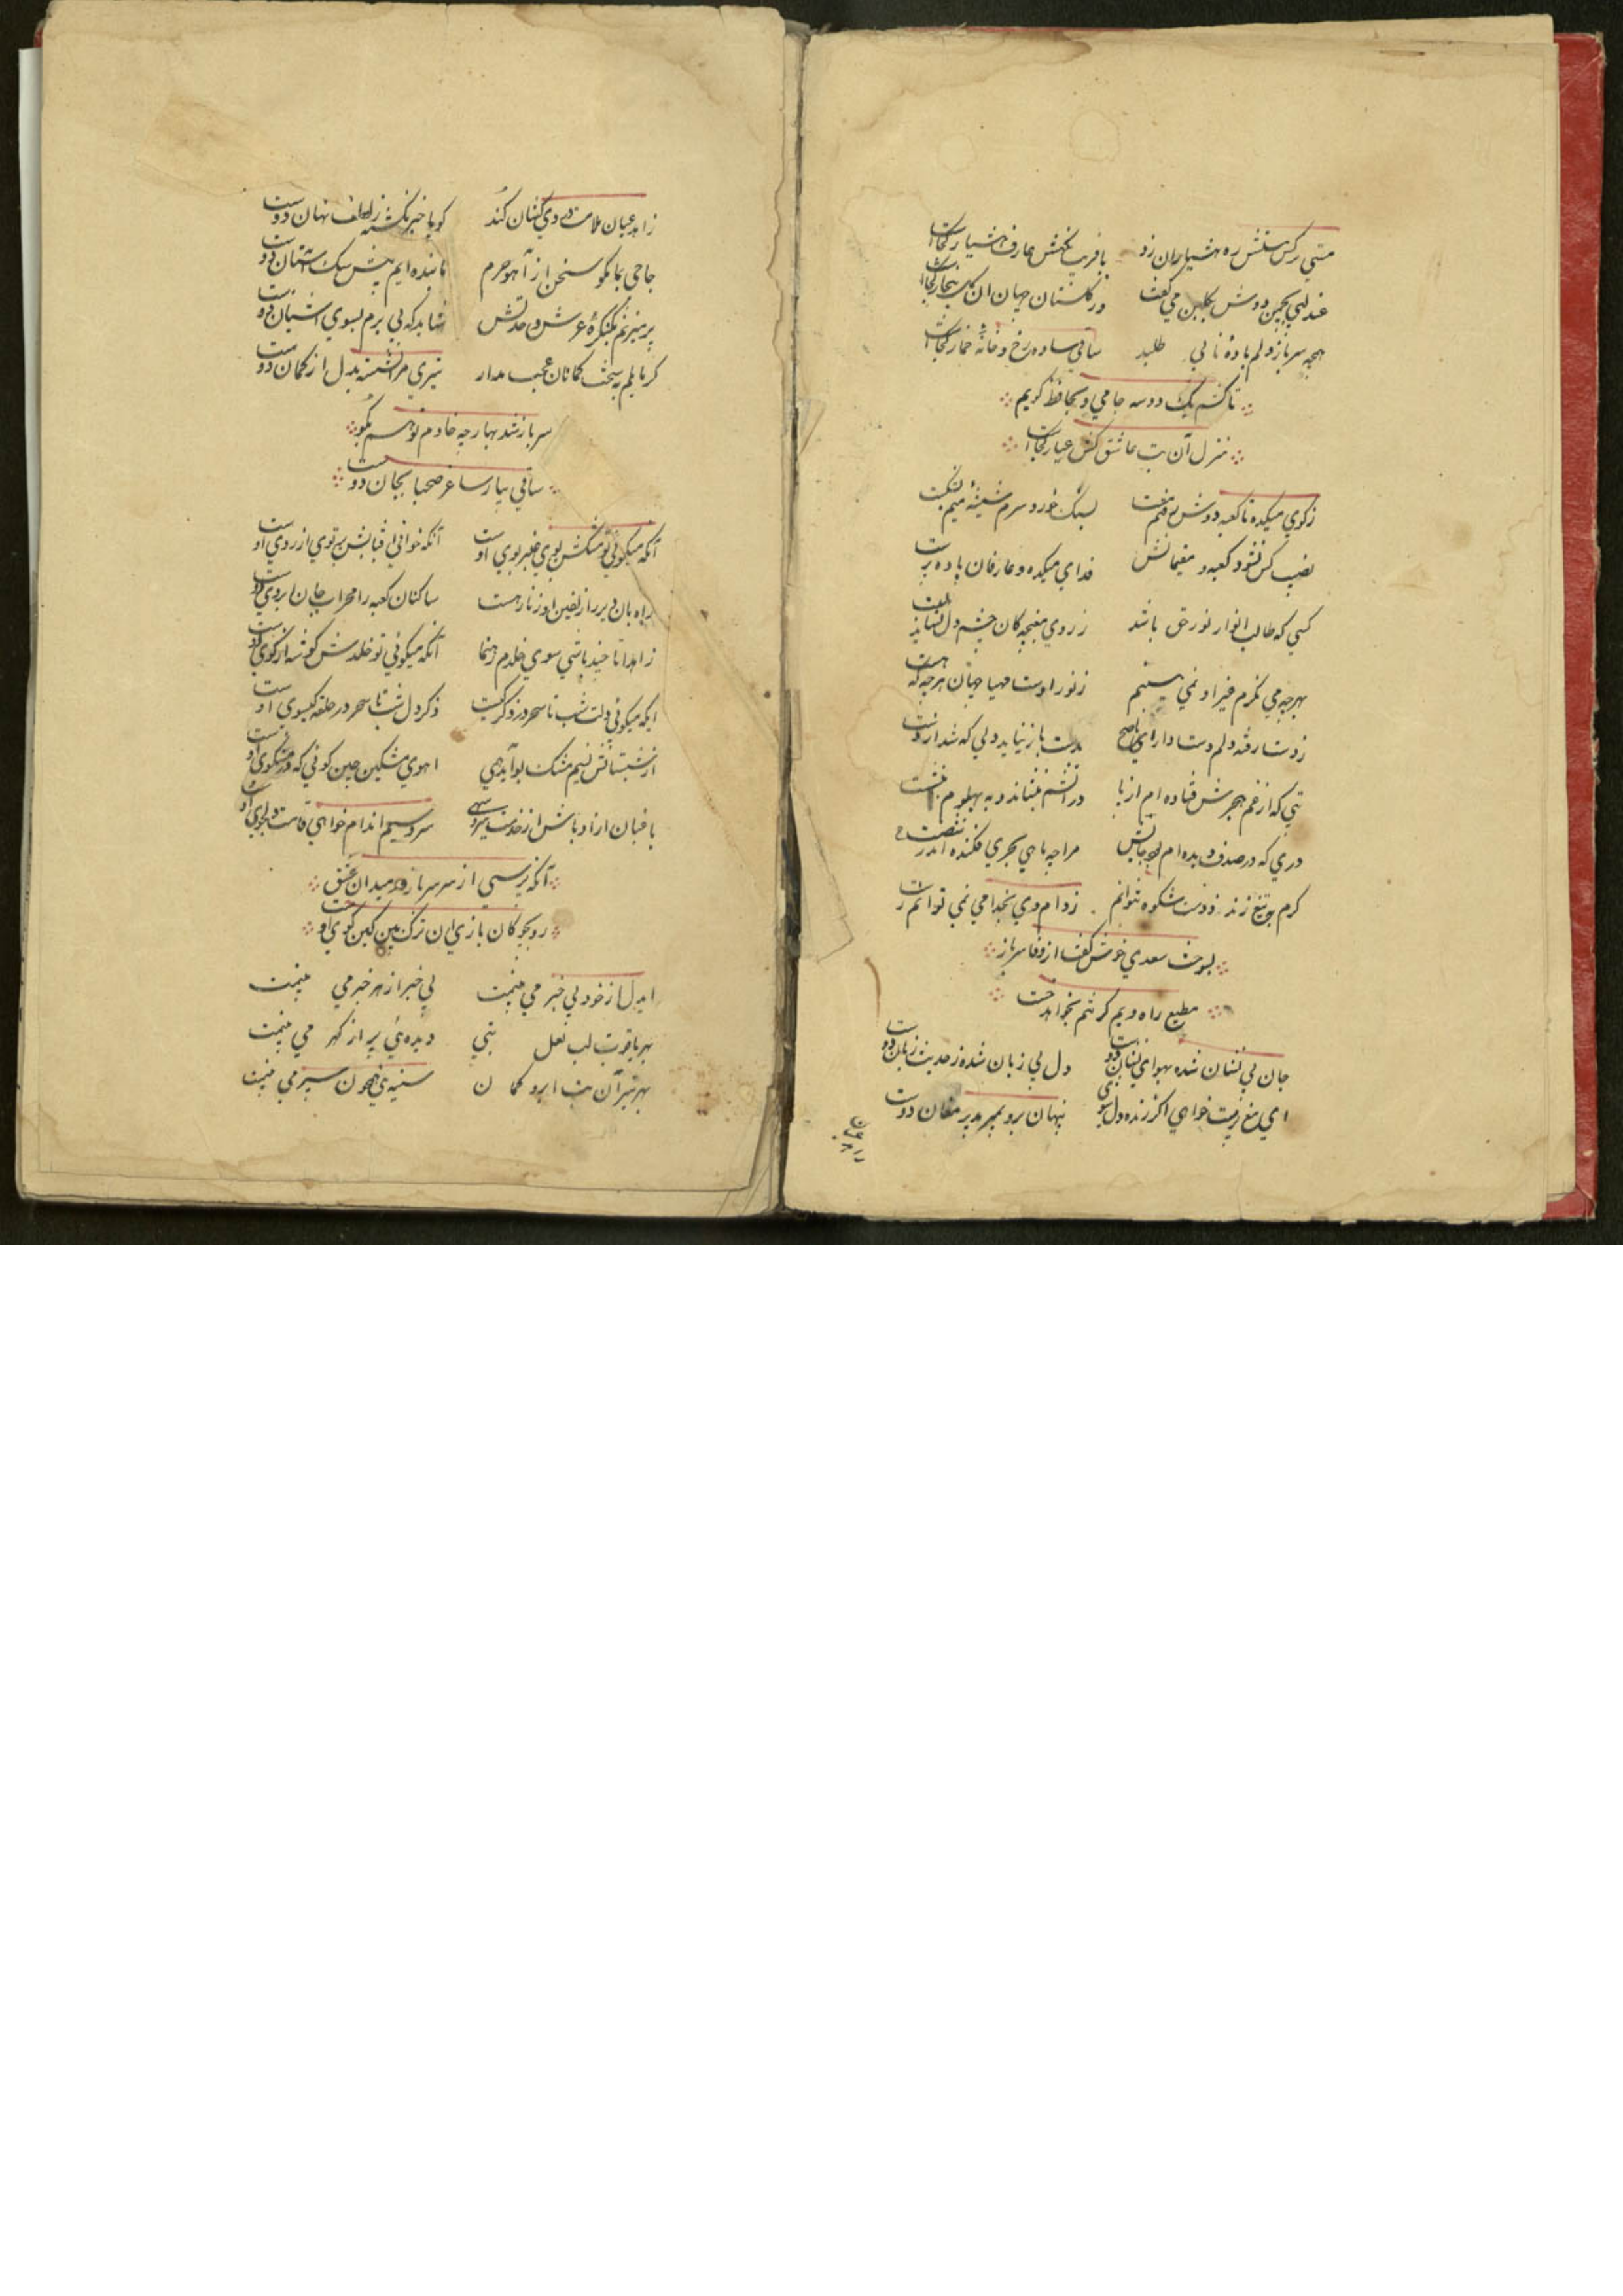 مستي نرکس مستش ره هشیاران زد بافریب نکهش عارف هشیار کجاست
عندلیبي بچمن دوش بکلبن مي کفت در کلستان جهان ان کل بیخار کجاست
سرباز دلم باده نابي طلبد ساقي ساده رخ و خانهٔ خمار کجاست
تا کشم یک دو سه جامي و بحافظ کویم
منزل آن بت عاشق کش عیار کجاست
زکوي میکده تا کعبه دوش مي رفتم بسنک خورد سرم شیشهٔ میم بشکست
نصیب کس نشود کعبه و مقیمانش فداي میکده و عارفان باده پرست
کسي که طالب انوار نور حق باشد زروي مغبچه کان چشم دل نباید بست
بهرچه مي نکرم غیر او نمي بینم زنور اوست مهیا جهان هرچه که هست
زدست رفته دلم دست دار اي ناصح بدست باز نیاید دلي که شد از دست
بتي که از غم هجرش فتاده ام از پا در آتشم بنشاند و به پهلویم ننشست
دري که در صدف دیده ام بود جایش مرا چه ماهي بحري فکنده اندر شست
کرم بتیغ زند دوست شکوه نتوانم زدام وي بخدا مي نمي توانم رست
بسوخت سعدي خوش کفت از وفا سرباز
مطیع راه ویم کر تنم بخواهد خست
جان بي نشان شده بهواي نشان دوست دل بي زبان شده زحدیث زبان دوست
اي مغ زیست خواهي اکر زنده دل بسوي پنهان برو بمیر بدیر مغان دوست
زاهد عیان ملامت دردي کشان کند کویا خبر نکشته زلطف نهان دوست
حاجي بما مکو سخن از آهو حرم ما بنده ایم پیش سک استان دوست
پر میزنم بکنکرهٔ عرش وحدتش شاید که پي برم بسوي اشیان دوست
کر مایلم بسخت کمانان عجب مدار تیري مرا نشسته بدل از کمان دوست
سرباز شد بهار چه خادم توهم بکو
ساقي بیار ساغر صحبا بجان دوست
آنکه میکوئي تو مشکش بوي عنبر بوي اوست آنکه خواني افتابش پرتوي از روي اوست
راهبان دیر را زلفین او زنار هست ساکنان کعبه را محراب جان ابروي اوست
زاهدا تا چند باشي سوي خلدم رهنما آنکه میکوئي تو خلدش کوشه از کوي اوست
ایکه میکوئي دلت شب تا سحر در ذکر کیست ذکر دل شب تا سحر در حلقه کیسوي اوست
از شبستانش نسیم مشک بو آید همي اهوي مشکین چین کوئي که در مشکوي اوست
باغبان ازاد باش از خدمت سرو سهي سرو سیم اندام خواهي قامت دلجوي اوست
آنکه نرسي از سر سرباز در میدان عشق
رو بچوکان بازي ان ترک بین کین کوي اوست
ایدل از خود بي خبر مي بینمت بي خبر از هر خبر مي بینمت
بهر یاقوت لب لعل بتي دیده ئي پر از کهر مي بینمت
بهر تیر آن بت ابرو کمان سینه ئي چون سپر مي بینمت